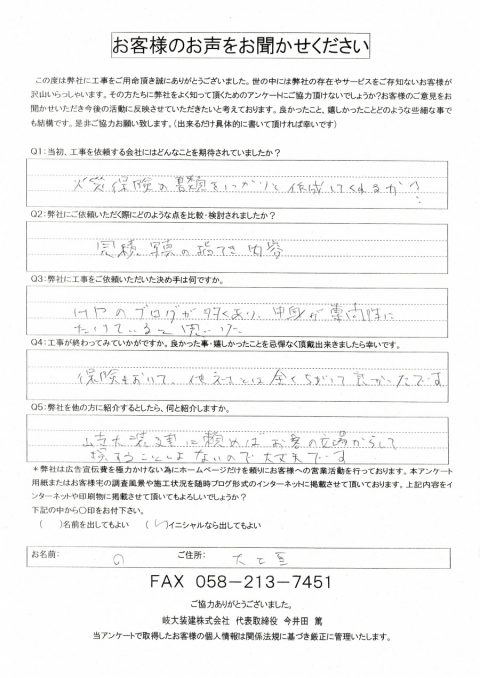 お客様のお声をお聞かせください
この度は弊社に工事をご用命頂き誠にありがとうございました。世の中には弊社の存在やサービスをご存知ないお客様が
沢山いらっしゃいます。その方たちに弊社をよく知って頂くためのアンケートにご協力頂けないでしょうか?お客様のご意見をお
聞かせいただき今後の活動に反映させていただきたいと考えております。良かったこと、嬉しかったことどのような些細な事で
も結構です。是非ご協力お願い致します。（出来るだけ具体的に書いて頂ければ幸いです）
Q1：当初、工事を依頼する会社にはどんなことを期待されていましたか?
火災保険の書類をしっかりと作成してくれるか?
Q2：弊社にご依頼いただく際にどのような点を比較・検討されましたか?
見積、写真の 内容
Q3：弊社に工事をご依頼いただいた決め手は何ですか。
のブログが多くあり、中身が専門性に
たけていると思いった
Q4：工事が終わってみていかがですか。良かった事・嬉しかったことを忌憚なく頂戴出来きましたら幸いです。
保険において、他社とは全くちがって良かったです
Q5：弊社を他の方に紹介するとしたら、何と紹介しますか。
岐大装建に頼めばお客の立場からして
損することしよないので大丈夫です
＊弊社は広告宣伝費を極力かけない為にホームページだけを頼りにお客様への営業活動を行っております。本アンケート
用紙またはお客様宅の調査風景や施工状況を随時ブログ形式のインターネットに掲載させて頂いております。上記内容をイ
ンターネットや印刷物に掲載させて頂いてもよろしいでしょうか?
下記の中から○印をお付下さい。
（　）名前を出してもよい　（レ）イニシャルなら出してもよい
お名前：　ご住所：
FAX 058－213－7451
ご協力ありがとうございました。
岐大装建株式会社 代表取締役 今井田 篤
当アンケートで取得したお客様の個人情報は関係法規に基づき厳正に管理いたします。